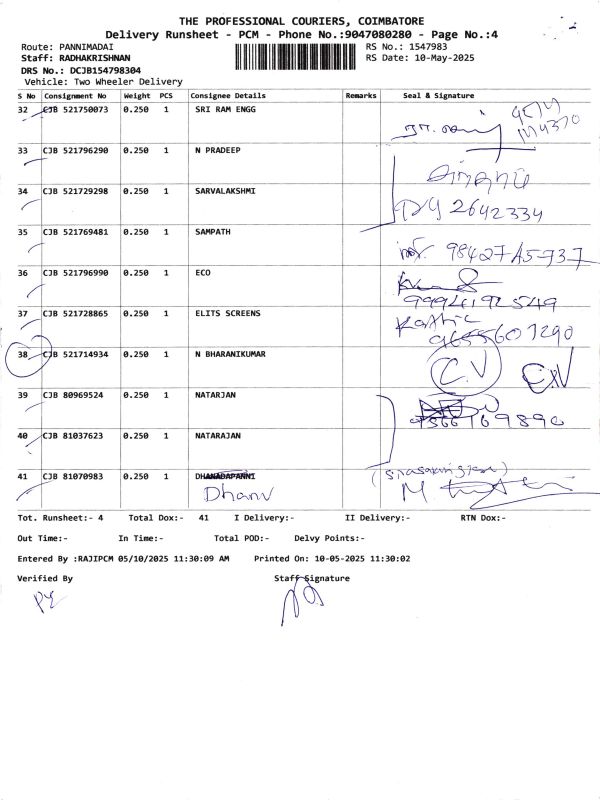 THE PROFESSIONAL COURIERS, COIMBATORE
Delivery Runsheet - PCM - Phone No.:9047080280 - Page No.:4
Route: PANNIMADAI RS No.: 1547983
Staff: RADHAKRISHNAN RS Date: 10-May-2025
DRS No.: DCJB154798304
Vehicle: Two Wheeler Delivery
S No Consignment No Weight PCS Consignee Details Remarks Seal & Signature
32 CJB 521750073 0.250 1 SRI RAM ENGG
33 CJB 521796290 0.250 1 N PRADEEP
34 CJB 521729298 0.250 1 SARVALAKSHMI
2642334
35 CJB 521769481 0.250 1 SAMPATH
36 CJB 521796990 0.250 1 ECO
37 CJB 521728865 0.250 1 ELITS SCREENS
38 CJB 521714934 0.250 1 N BHARANIKUMAR C.V
39 CJB 80969524 0.250 1 NATARJAN
40 CJB 81037623 0.250 1 NATARAJAN
41 CJB 81070983 0.250 1
Dhanv
Tot. Runsheet:- 4 Total Dox:- 41 I Delivery:- II Delivery:- RTN Dox:-
Out Time:- In Time:- Total POD:- Delvy Points:-
Entered By :RAJIPCM 05/10/2025 11:30:09 AM Printed On: 10-05-2025 11:30:02
Verified By Staff Signature